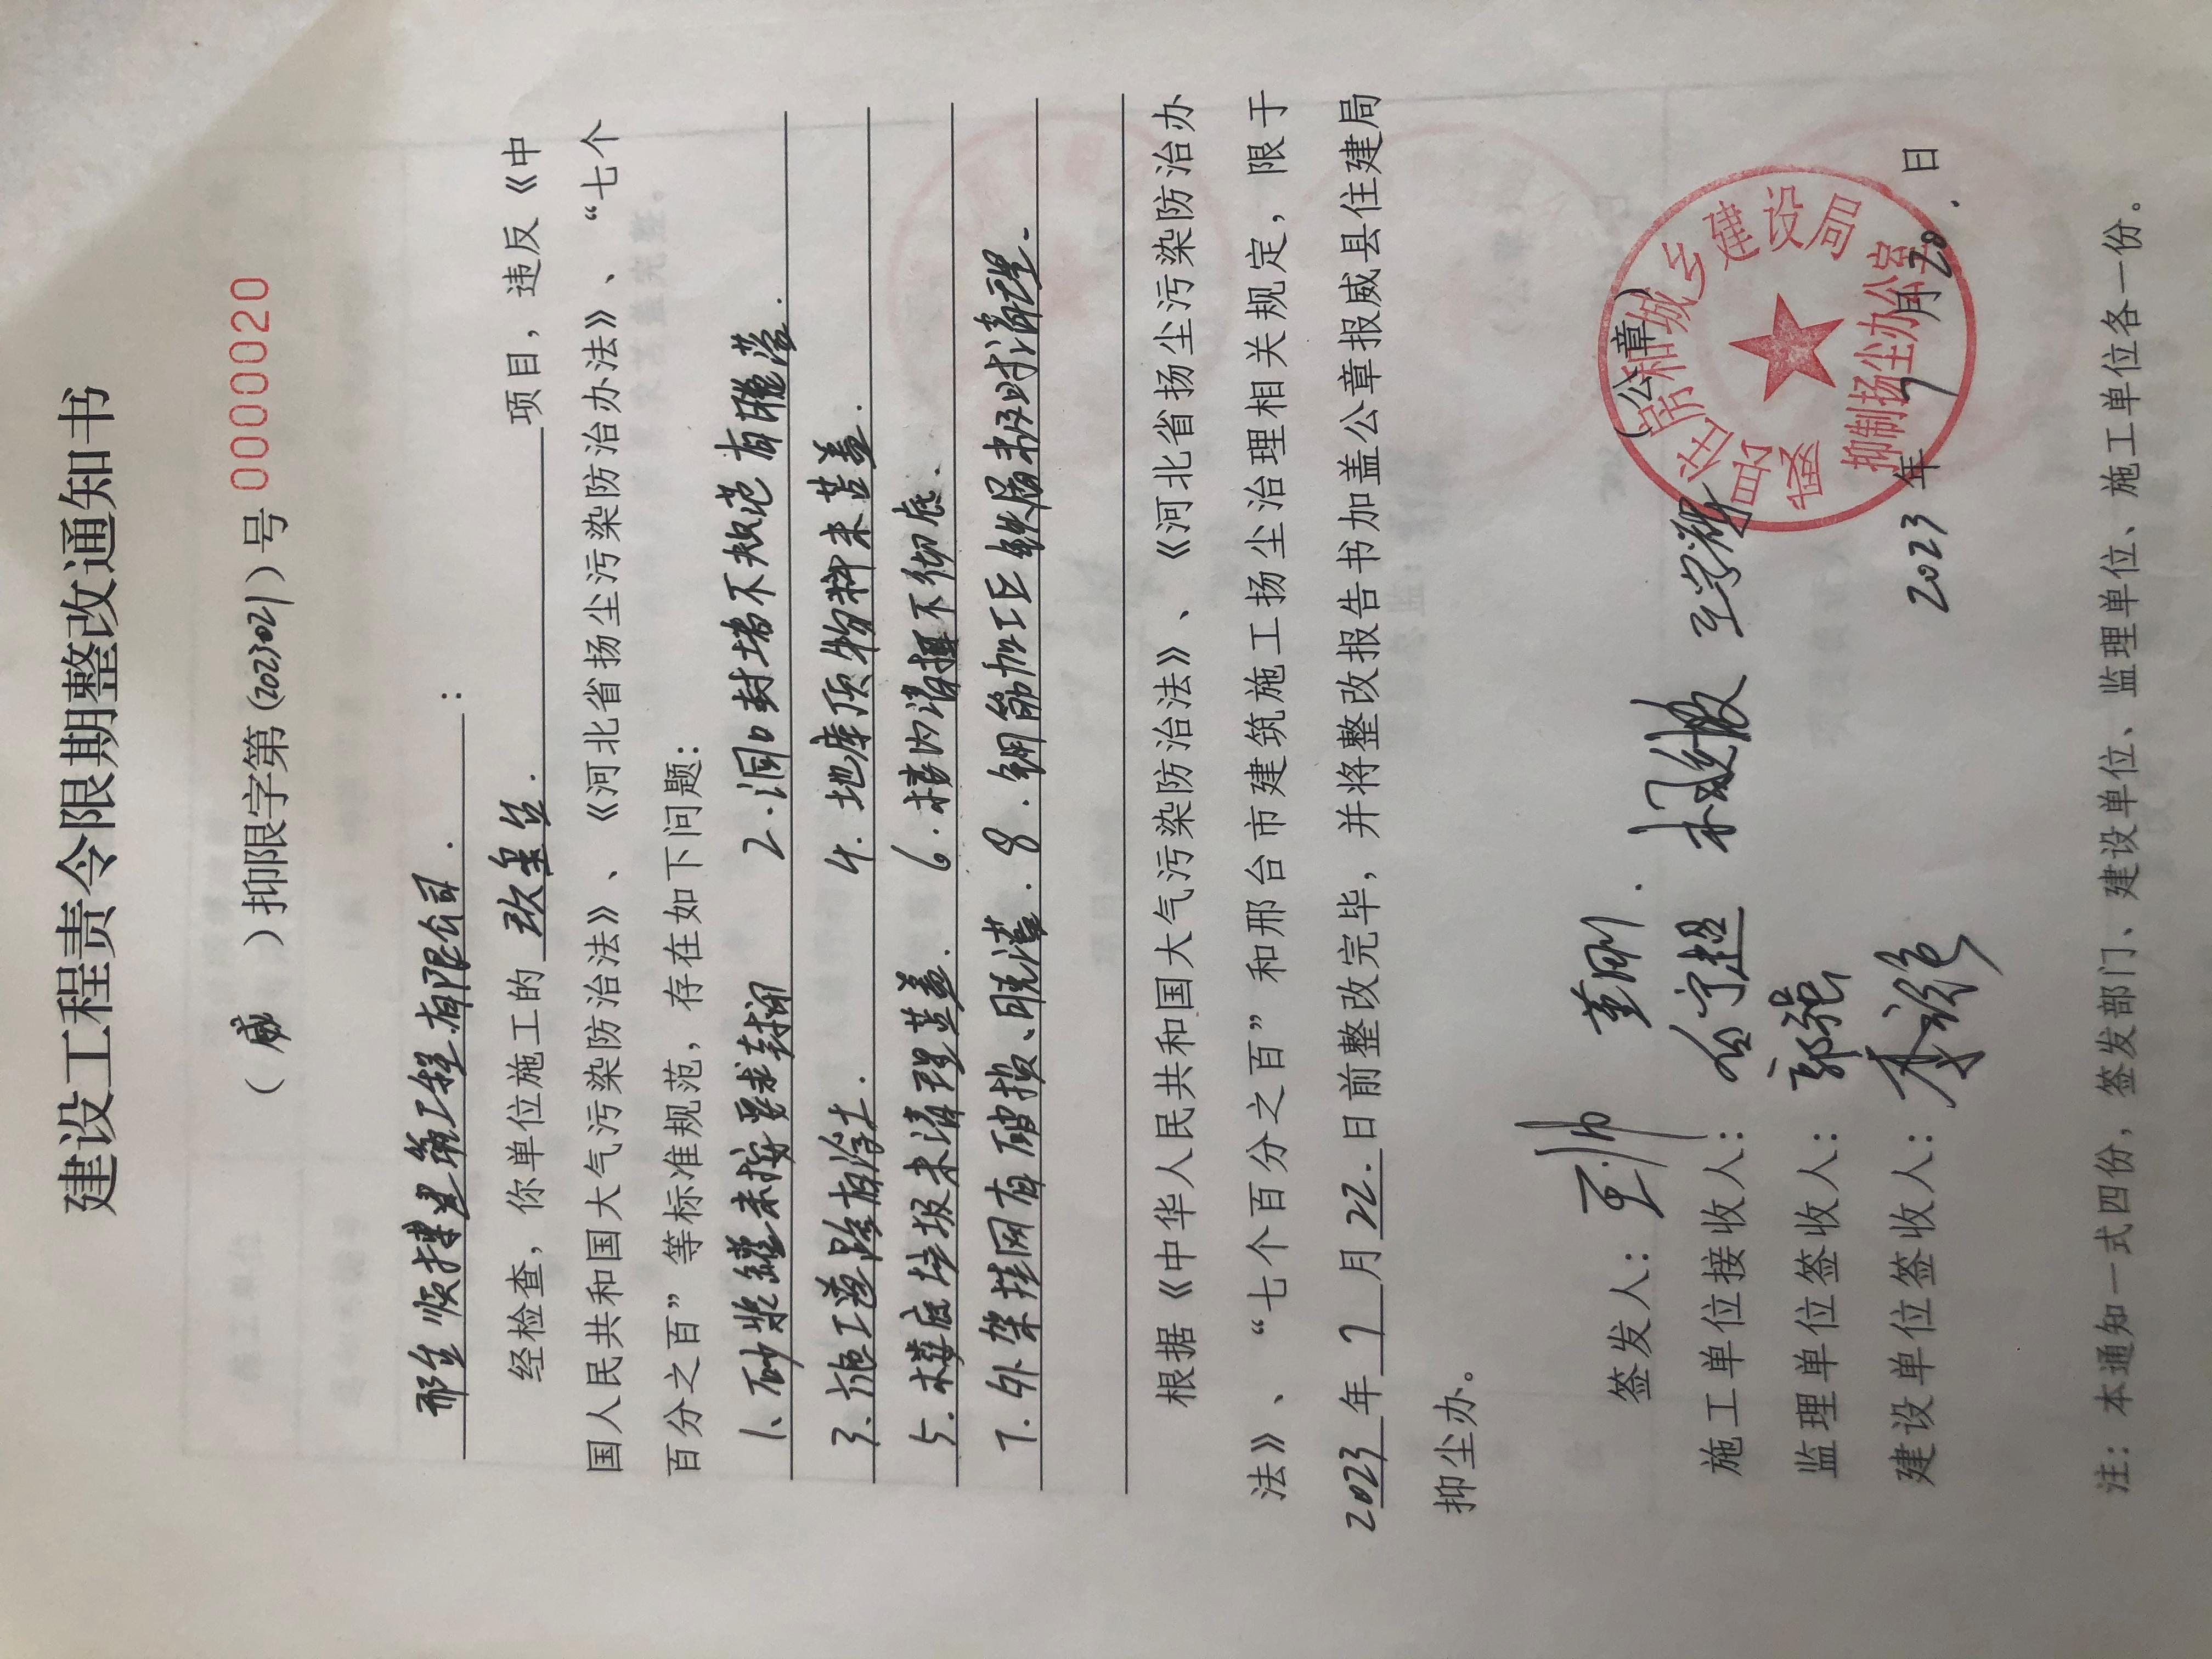 建设工程责令限期整改通知书
（威）抑限字第(2023021)号 0000020
顺捷建筑工程有限公司：
经检查，你单位施工的 项目，违反《中
国人民共和国大气污染防治法》、《河北省扬尘污染防治办法》、“七个
百分之百”等标准规范，存在如下问题：
1、砂浆罐未按要求封闭 2.洞口封堵不规范有脱落.
3、施工道路有浮土. 4.地库顶物料未苫盖.
5.楼底垃圾未清理苫盖. 6.楼内清理不彻底.
7.外架挂网有破损、脱落. 8.钢筋加工区铁屑未及时清理.
根据《中华人民共和国大气污染防治法》、《河北省扬尘污染防治办
法》、“七个百分之百”和邢台市建筑施工扬尘治理相关规定，限于
2023年7月22.日前整改完毕，并将整改报告书加盖公章报威县住建局
抑尘办。
签发人：王帅 （公章）
施工单位接收人：
监理单位签收人：郭强
建设单位签收人：
2023年7月20.日
威县住房和城乡建设局
抑制扬尘办公室
注：本通知一式四份，签发部门、建设单位、监理单位、施工单位各一份。